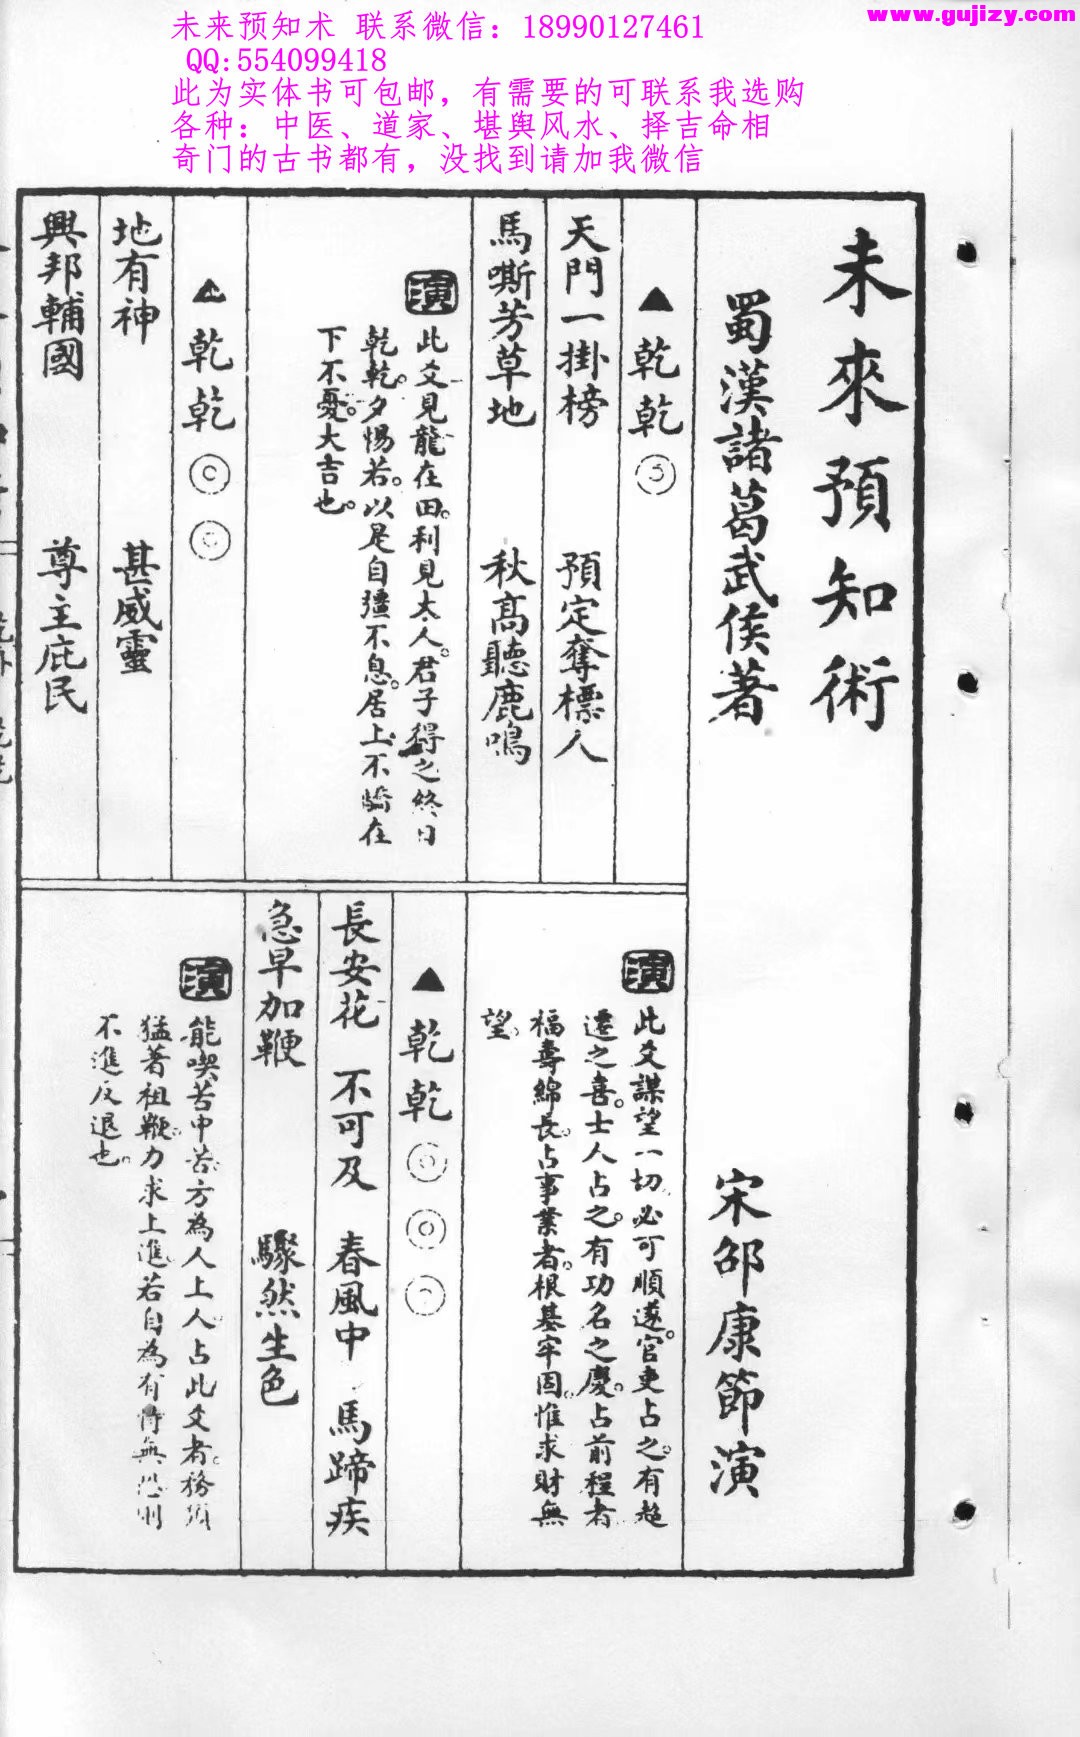 www.gujizy.com
未来预知术 联系微信：18990127461
QQ:554099418
此为实体书可包邮，有需要的可联系我选购
各种：中医、道家、堪舆风水、择吉命相
奇门的古书都有，没找到请加我微信
未來預知術
蜀漢諸葛武侯著 宋邵康節演
▲乾乾◎
天門一掛榜 預定奪標人
馬嘶芳草地 秋高聽鹿鳴
演
此爻見龍在田。利見大人。君子得之終日
乾乾。夕惕若。以是自彊不息。居上不驕在
下不憂。大吉也。
▲乾乾◎◎
地有神 甚威靈
興邦輔國 尊主庇民
演
此爻謀望一切必可順遂。官吏占之。有超
遷之喜。士人占之。有功名之慶。占前程者
福壽綿長。占事業者。根基牢固。惟求財無
望。
▲乾乾◎◎◎
長安花 不可及 春風中 馬蹄疾
急早加鞭 驟然生色
演
能喫苦中苦。方為人上人。占此爻者。務須
猛著祖鞭。力求上進。若自為有恃無恐則
不進反退也。